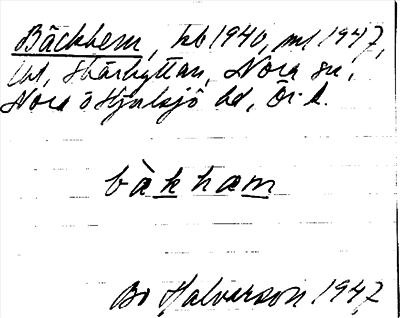 Bäckhem, hb 1940, ml 1947,
lht, Skärhyttan, Nora sn,
Nora o Hjulsjö bd, Ör. l.
bàkham
Bo Halvarson 1947